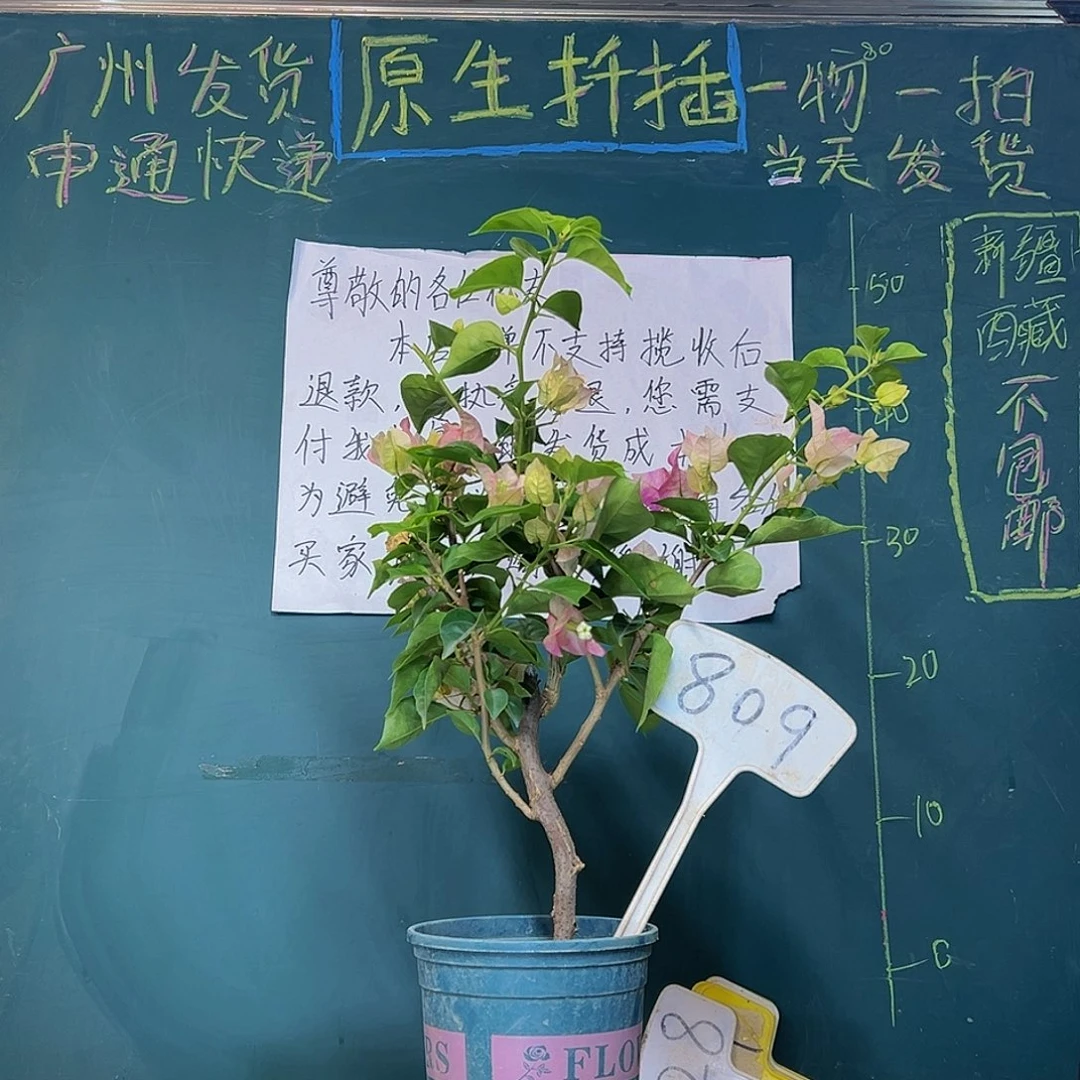 广州发货
原生扦插
一物一拍
80
申通快递
当天发货
新疆
西藏
不
包
邮
尊敬的各位
本 不支持揽收后
退款, 退,您需支
付我 发货成
为避免
买家
50
40
30
20
10
0
809
RS FLO
8